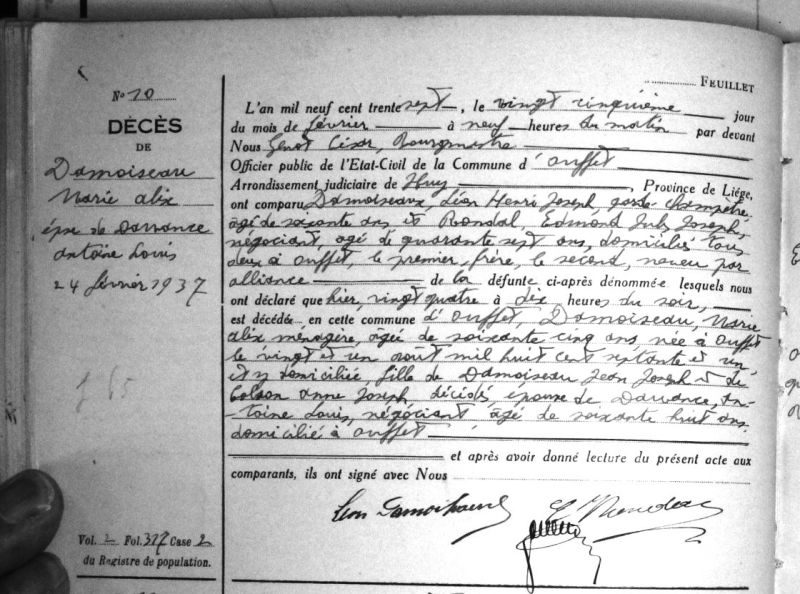 FEUILLET
No 10
DÉCÈS
DE
Damoiseau
Marie Alix
épse de Darvance
Antoine Louis
24 février 1937
f 65
Vol. 2 Fol. 317 Case 2
du Registre de population.
L'an mil neuf cent trente sept, le vingt cinquième jour
du mois de février à neuf heures du matin par devant
Nous Genot César, Bourgmestre
Officier public de l'Etat-Civil de la Commune d'Ouffet
Arrondissement judiciaire de Huy, Province de Liége,
ont comparu Damoiseaux, Léon Henri Joseph, garde champêtre,
âgé de soixante ans et Rondal, Edmond Jules Joseph,
négociant, âgé de quarante sept ans, domiciliés tous
deux à Ouffet, le premier, frère, le second, neveu par
alliance de la défunte ci-après dénommée lesquels nous
ont déclaré que hier, vingt quatre à dix heures du soir,
est décédée en cette commune d'Ouffet, Damoiseau, Marie
Alix ménagère, âgée de soixante cinq ans, née à Ouffet
le vingt et un août mil huit cent septante et un,
et y domiciliée fille de Damoiseau Jean Joseph et de
Colson Anne Joseph, décédés, épouse de Darvance, An-
toine Louis, négociant âgé de soixante huit ans
domicilié à Ouffet
et après avoir donné lecture du présent acte aux
comparants, ils ont signé avec Nous
Léon Damoiseaux